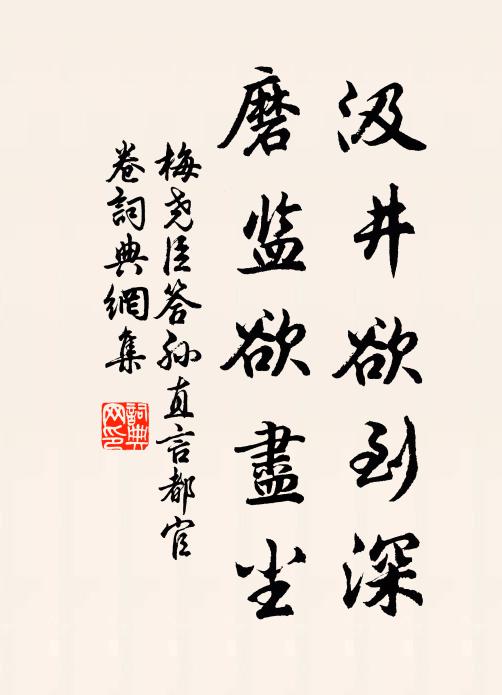 汲井欲到深
磨监欲盡尘
梅尧臣答孙直言都官
卷詞典網集
詞典
网印